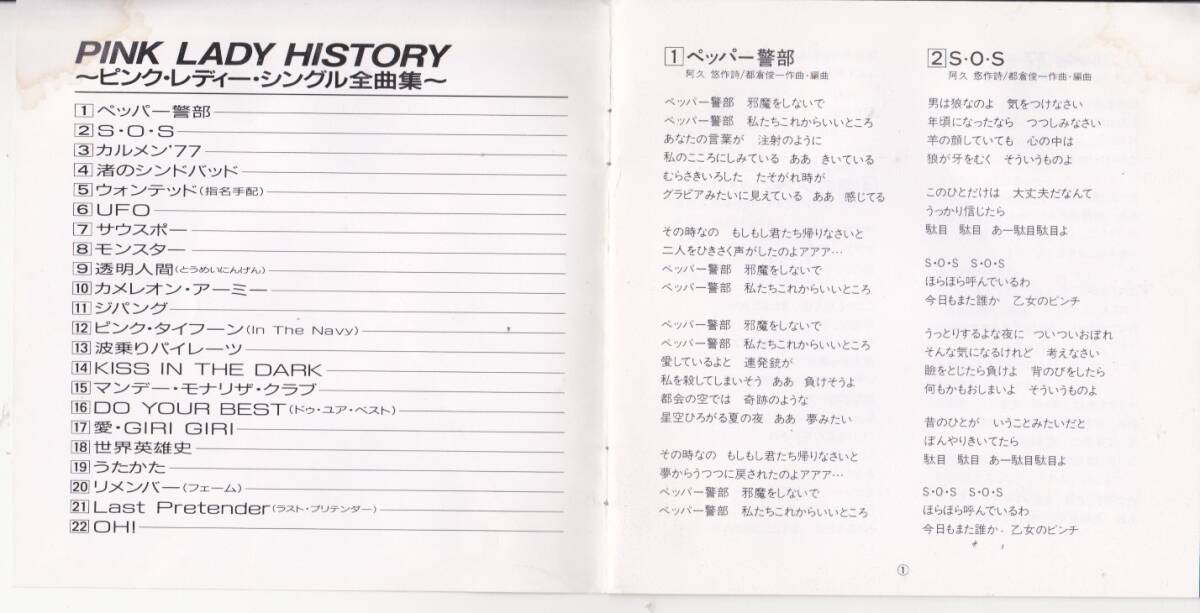 PINK LADY HISTORY
〜ピンク・レディー・シングル全曲集〜
1 ペッパー警部
2 S・O・S
3 カルメン'77
4 渚のシンドバッド
5 ウォンテッド(指名手配)
6 UFO
7 サウスポー
8 モンスター
9 透明人間(とうめいにんげん)
10 カメレオン・アーミー
11 ジパング
12 ピンク・タイフーン(In The Navy)
13 波乗りパイレーツ
14 KISS IN THE DARK
15 マンデー・モナリザ・クラブ
16 DO YOUR BEST(ドゥ・ユア・ベスト)
17 愛・GIRI GIRI
18 世界英雄史
19 うたかた
20 リメンバー(フェーム)
21 Last Pretender(ラスト・プリテンダー)
22 OH!
1 ペッパー警部
阿久 悠作詩/都倉俊一作曲・編曲
ペッパー警部 邪魔をしないで
ペッパー警部 私たちこれからいいところ
あなたの言葉が 注射のように
私のこころにしみている ああ きいている
むらさきいろした たそがれ時が
グラビアみたいに見えている ああ 感じてる
その時なの もしもし君たち帰りなさいと
二人をひきさく声がしたのよアアア…
ペッパー警部 邪魔をしないで
ペッパー警部 私たちこれからいいところ
ペッパー警部 邪魔をしないで
ペッパー警部 私たちこれからいいところ
愛しているよと 連発銃が
私を殺してしまいそう ああ 負けそうよ
都会の空では 奇跡のような
星空ひろがる夏の夜 ああ 夢みたい
その時なの もしもし君たち帰りなさいと
夢からうつつに戻されたのよアアア…
ペッパー警部 邪魔をしないで
ペッパー警部 私たちこれからいいところ
2 S・O・S
阿久 悠作詩/都倉俊一作曲・編曲
男は狼なのよ 気をつけなさい
年頃になったなら つつしみなさい
羊の顔していても 心の中は
狼が牙をむく そういうものよ
このひとだけは 大丈夫だなんて
うっかり信じたら
駄目 駄目 あー駄目駄目よ
S・O・S S・O・S
ほらほら呼んでいるわ
今日もまた誰か 乙女のピンチ
うっとりするよな夜に ついついおぼれ
そんな気になるけれど 考えなさい
瞼をとじたら負けよ 背のびをしたら
何もかもおしまいよ そういうものよ
昔のひとが いうことみたいだと
ぼんやりきいてたら
駄目 駄目 あー駄目駄目よ
S・O・S S・O・S
ほらほら呼んでいるわ
今日もまた誰か 乙女のピンチ
①